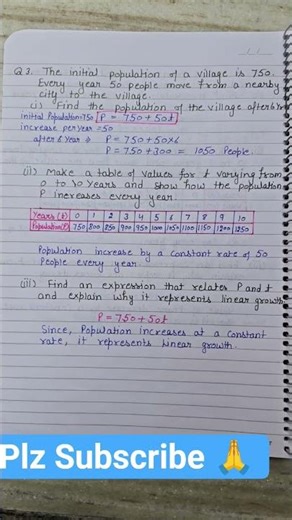 Q 3. The initial population of a village is 750.
Every year 50 people move from a nearby
city to the village.
(i) Find the population of the village after 6 yr
initial Population=750 P = 750 + 50t
increase per year = 50
after 6 year ⇒ P = 750 + 50×6
P = 750 + 300 = 1050 People.
(ii) Make a table of values for t varying from
0 to 10 Years and show how the population
P increases every year.
Years (t) 0 1 2 3 4 5 6 7 8 9 10
Population(P) 750 800 850 900 950 1000 1050 1100 1150 1200 1250
Population increase by a constant rate of 50
People every year
(iii) Find an expression that relates P and t
and explain why it represents linear growth
P = 750 + 50t
Since, Population increases at a constant
rate, it represents linear growth.
Plz Subscribe 🙏